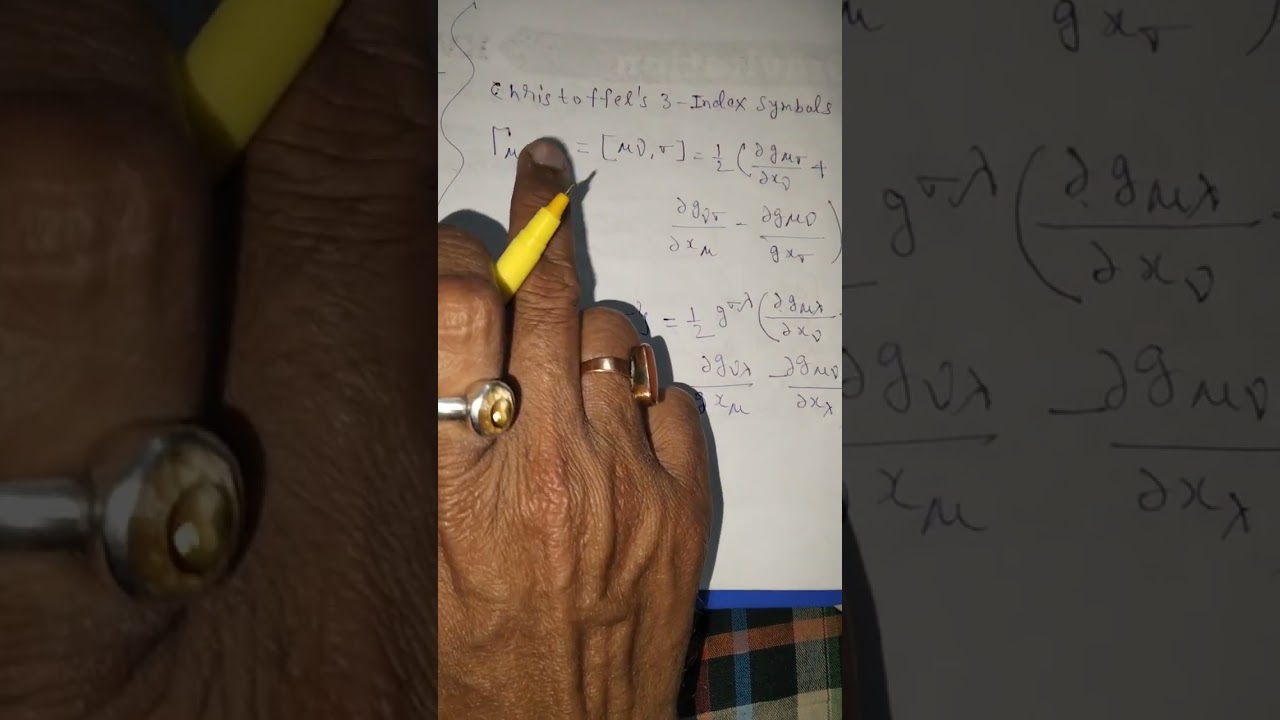 Christoffel's 3-Index symbols
Γμ = [μν, σ] = 1/2 ( ∂gμσ/∂xν +
∂gνσ/∂xμ - ∂gμν/gxσ )
= 1/2 g^σλ ( ∂gμλ/∂xν
∂gνλ/∂xμ - ∂gμν/∂xλ